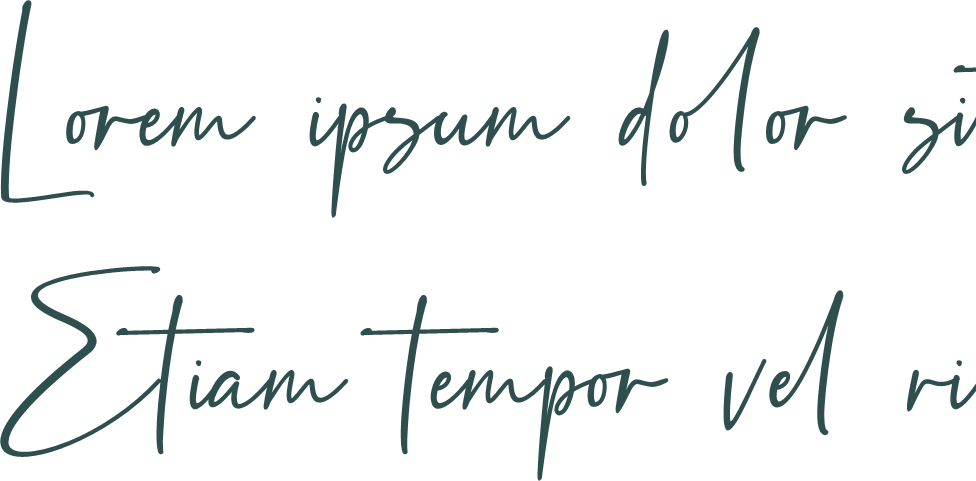 Lorem ipsum dolor si
Etiam tempor vel ri